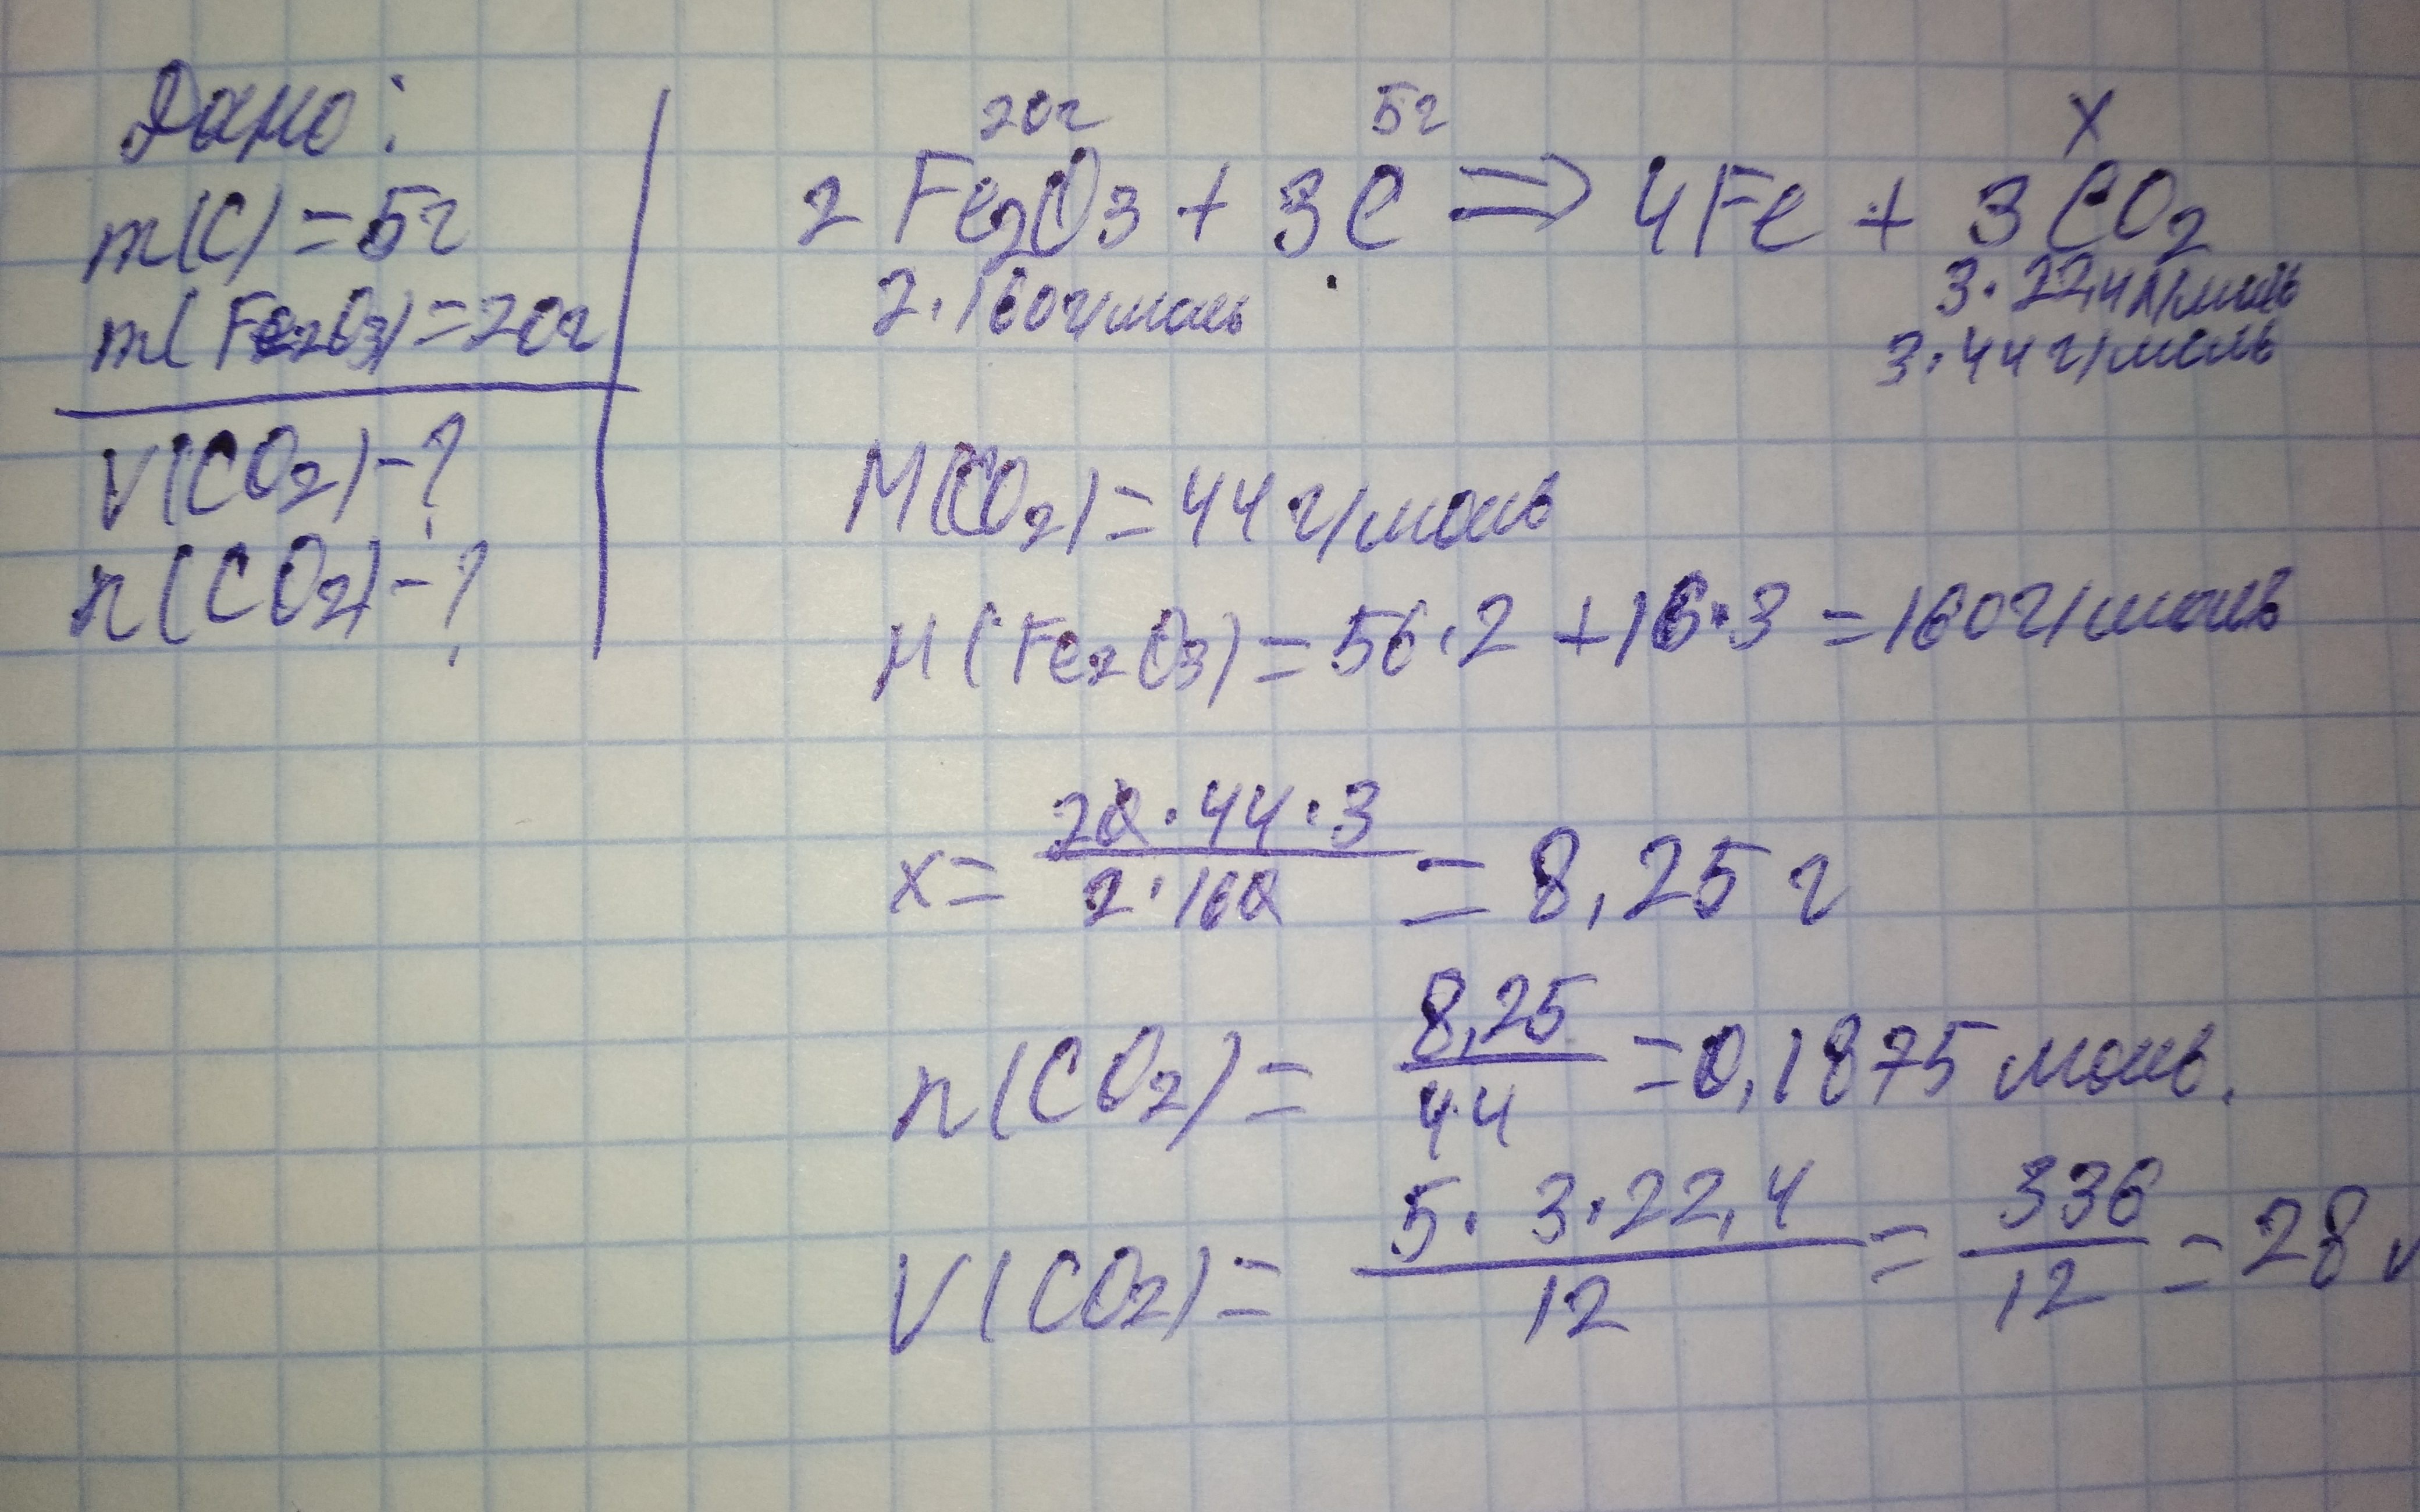 Дано:
m(C)=5г
m(Fe2O3)=20г
V(CO2)-?
n(CO2)-?
20г 5г x
2Fe2O3 + 3C => 4Fe + 3CO2
2·160г/моль 3·22,4л/моль
3·44г/моль
M(CO2)=44г/моль
M(Fe2O3)=56·2+16·3=160г/моль
x= 20·44·3 / 2·160 = 8,25г
n(CO2)= 8,25 / 44 =0,1875 моль.
V(CO2)= 5·3·22,4 / 12 = 336 / 12 =28л